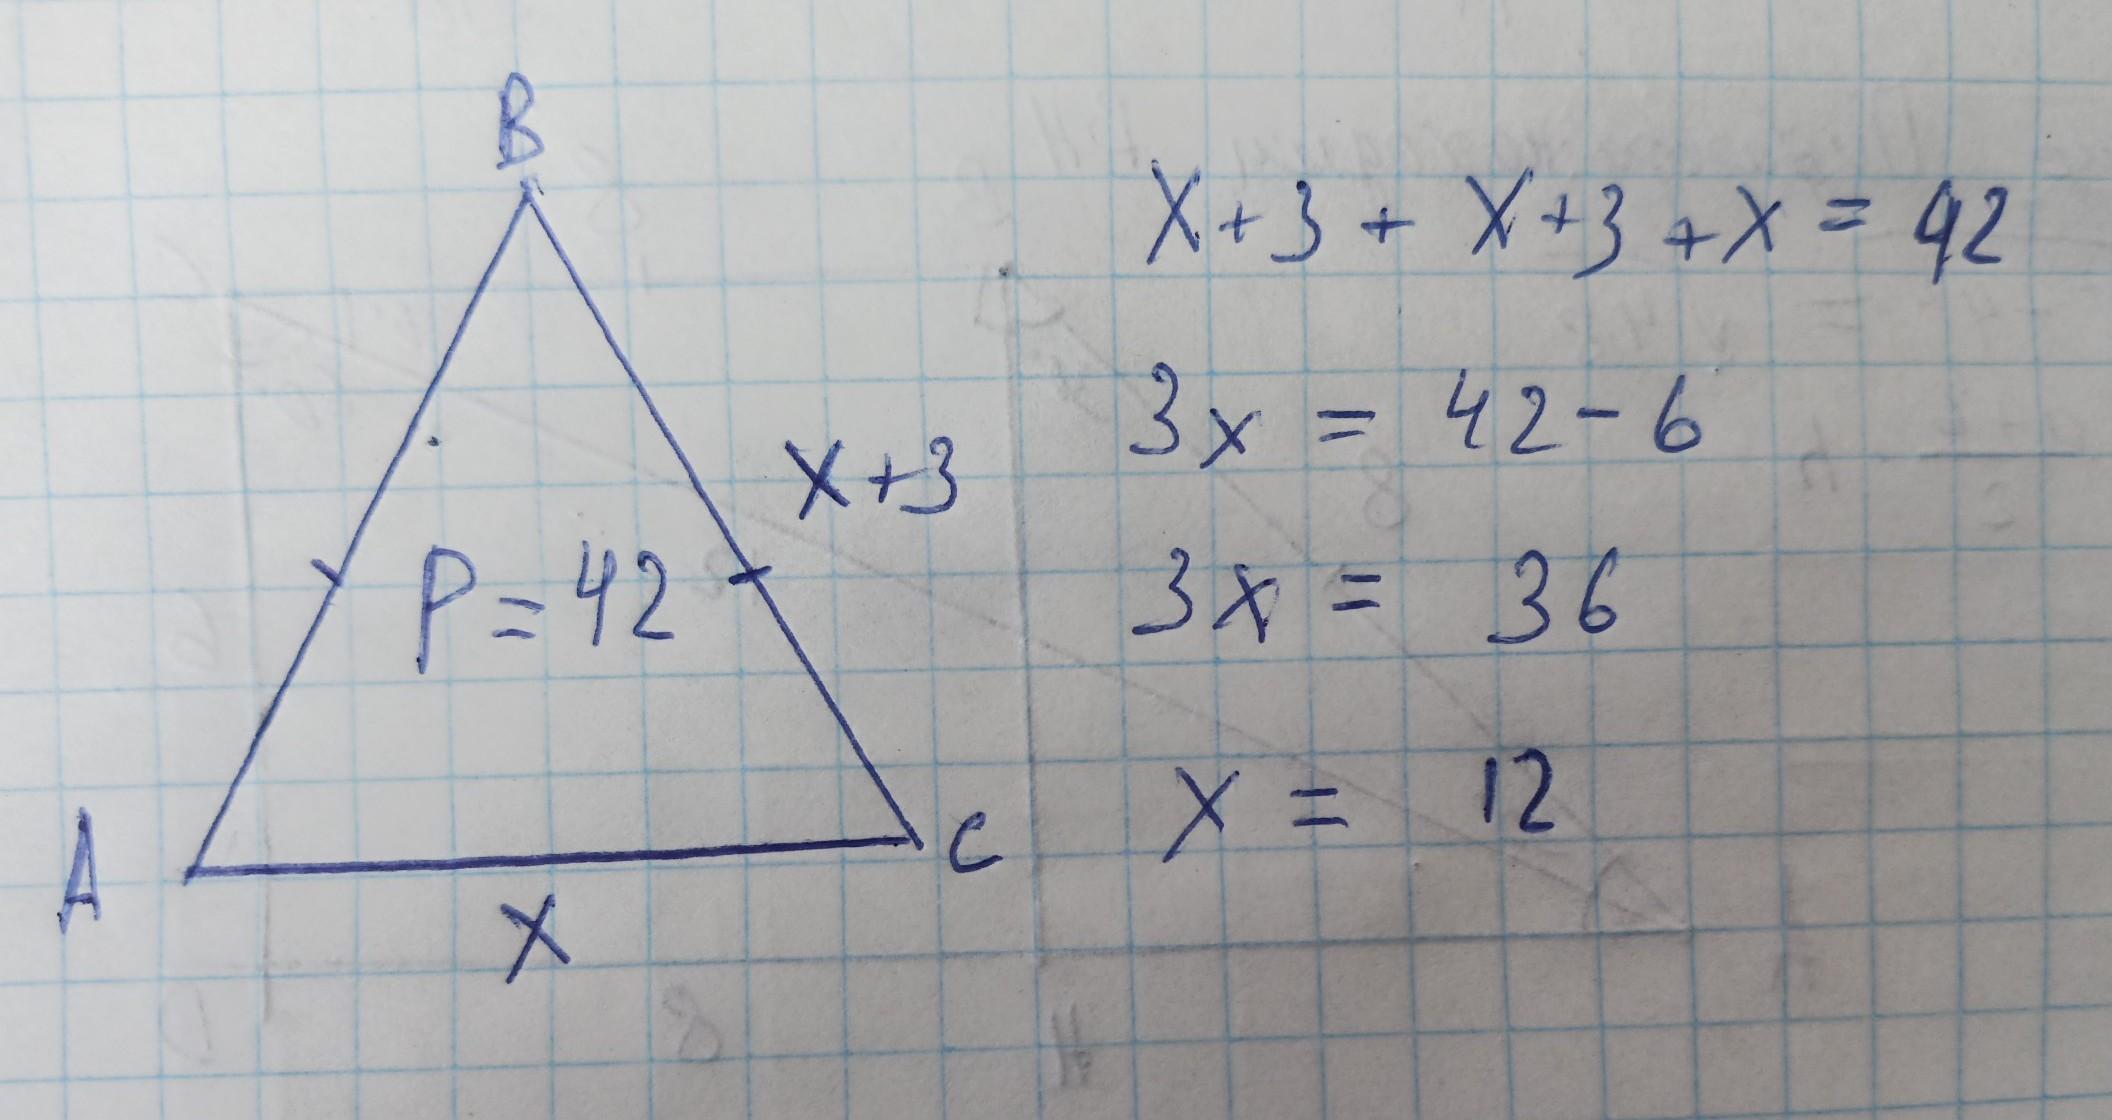 B
X+3
P=42
A
C
X
X+3+X+3+x=42
3x=42-6
3x=36
x=12